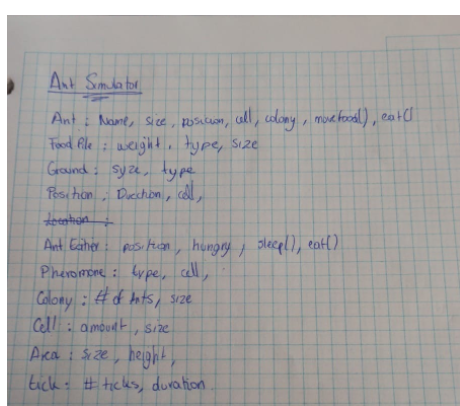 Ant Simulator
Ant : Name, size, position, cell, colony, movefood(), eat()
Food Pile : weight, type, size
Ground : syze, type
Position : Direction, cell,
Location :
Ant Eather : position, hungry, sleep(), eat()
Pheromone : type, cell,
Colony : # of Ants, size
Cell : amount, size
Area : size, height,
tick : # ticks, duration